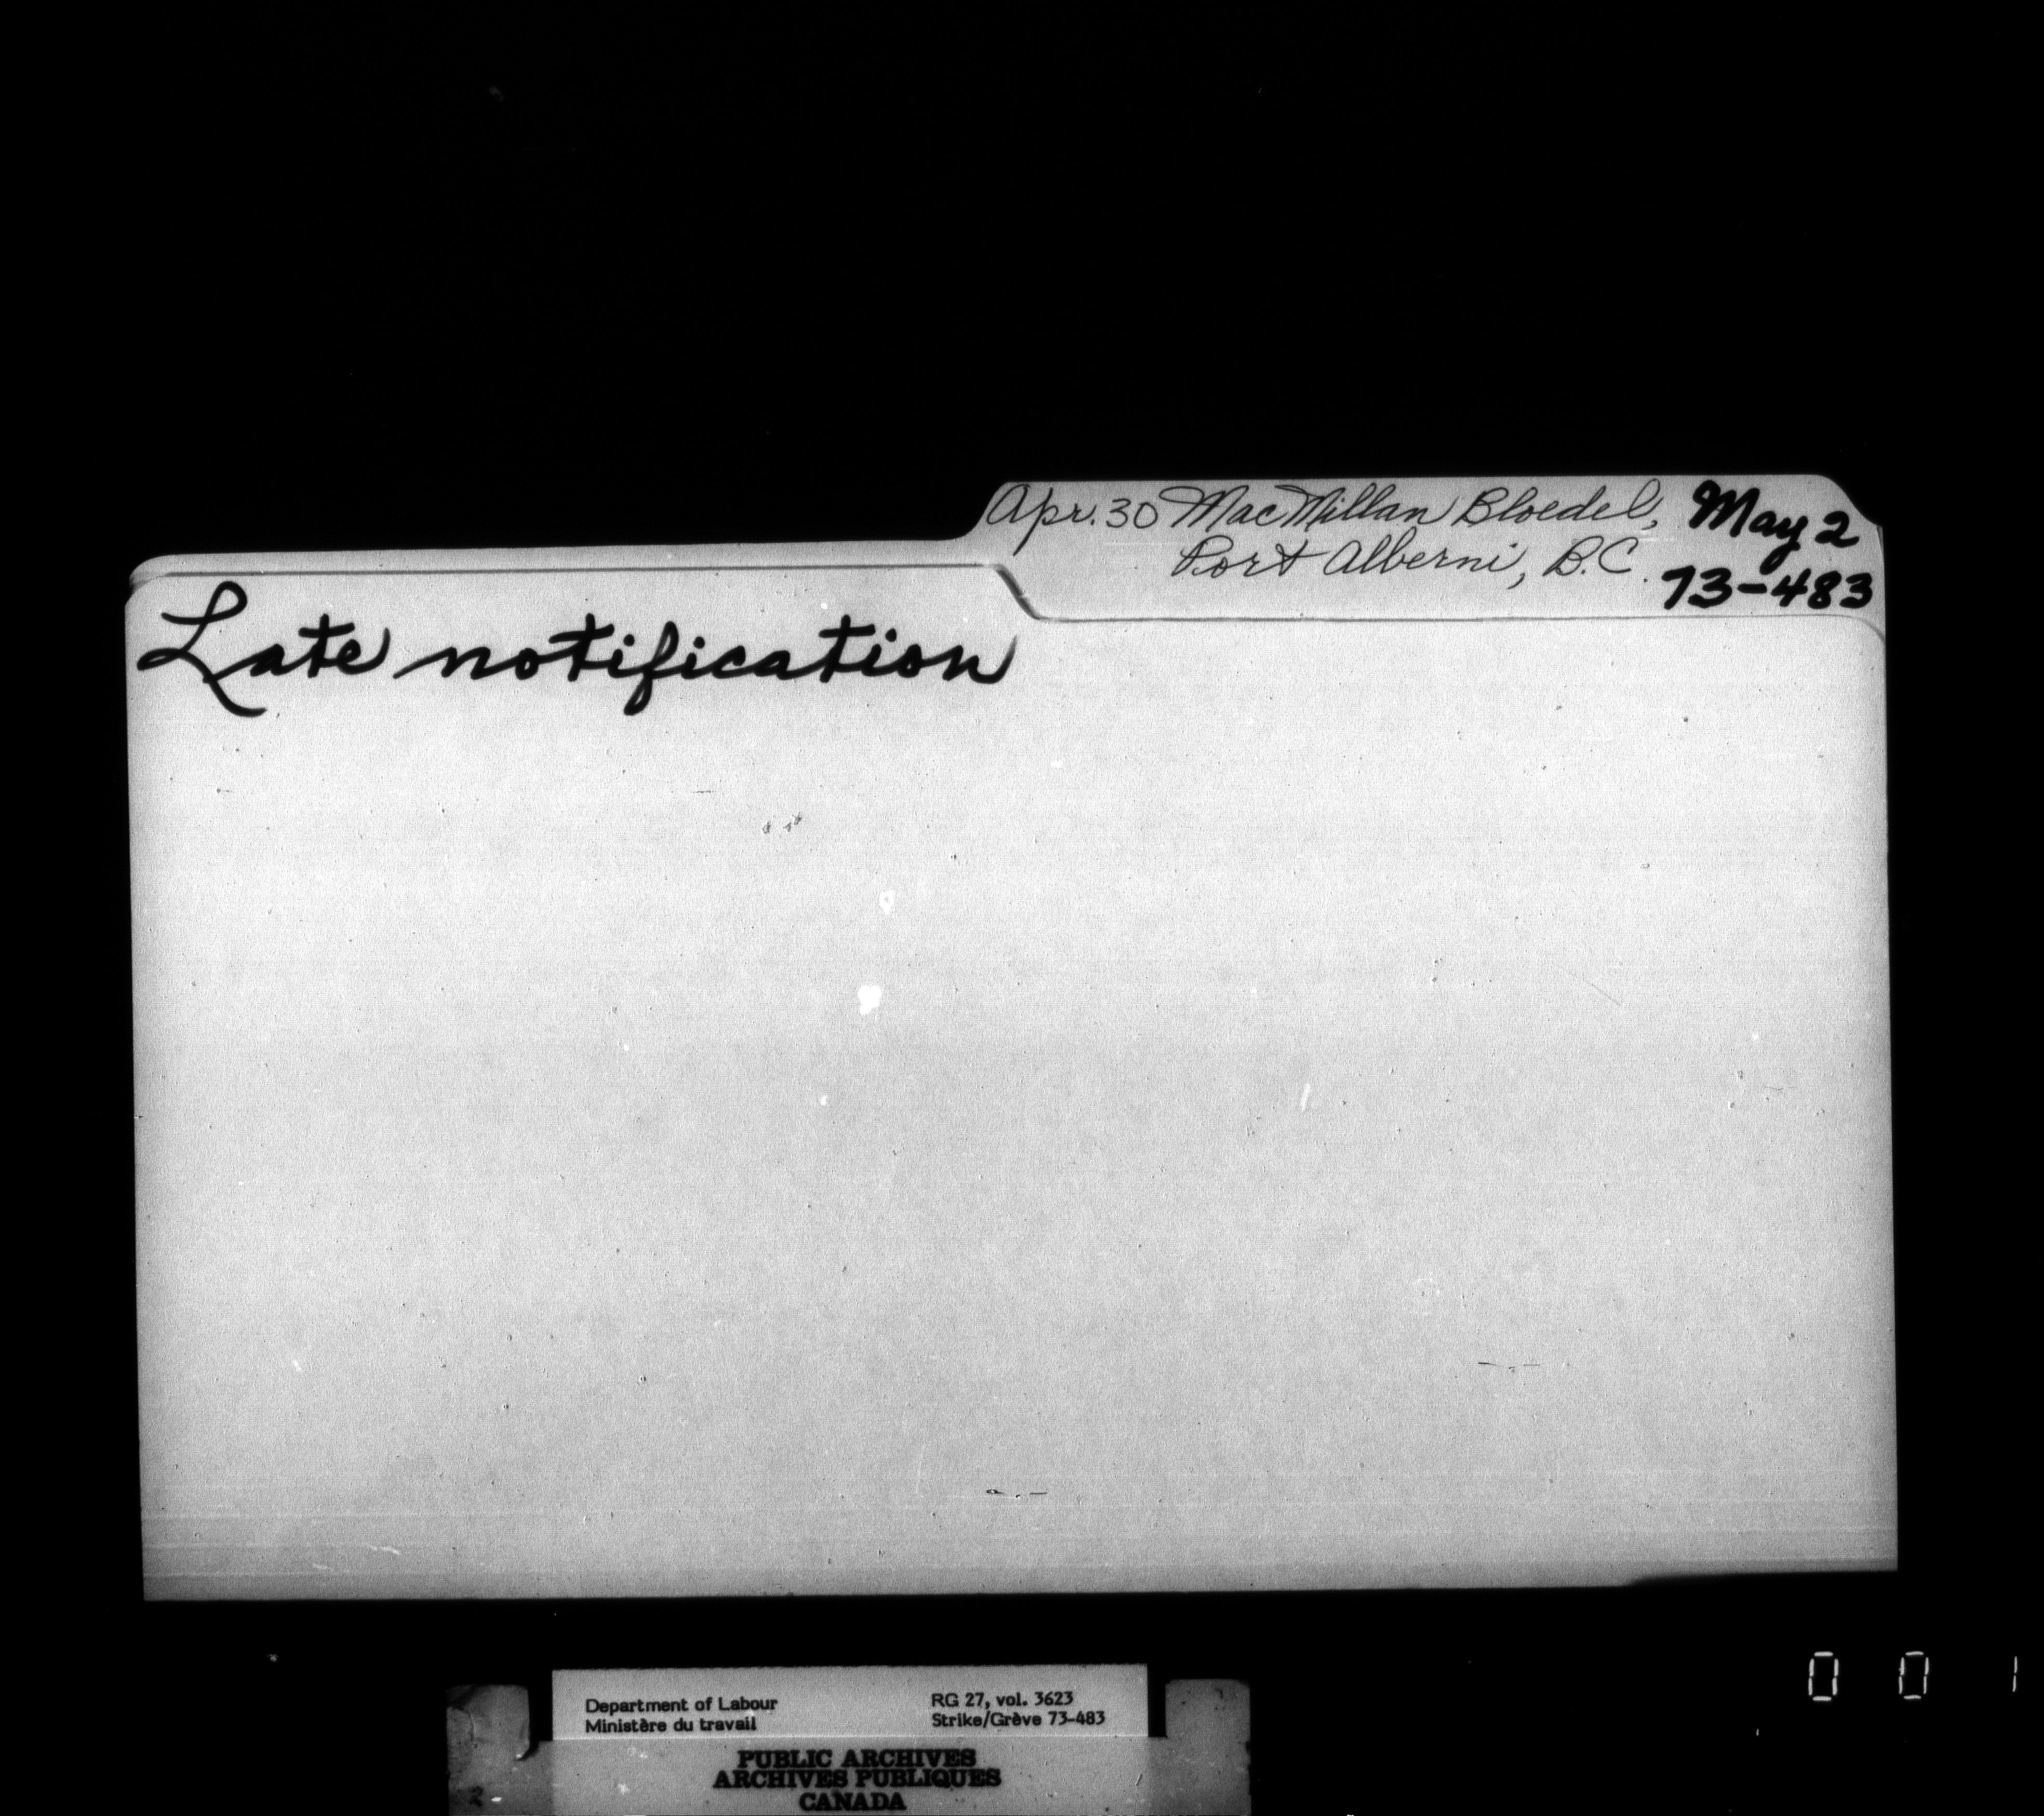 Apr. 30 MacMillan Bloedel, May 2
Port Alberni, B.C. 73-483
Late notification
Department of Labour RG 27, vol. 3623
Ministère du travail Strike/Grève 73-483
PUBLIC ARCHIVES
ARCHIVES PUBLIQUES
CANADA
0 0 1